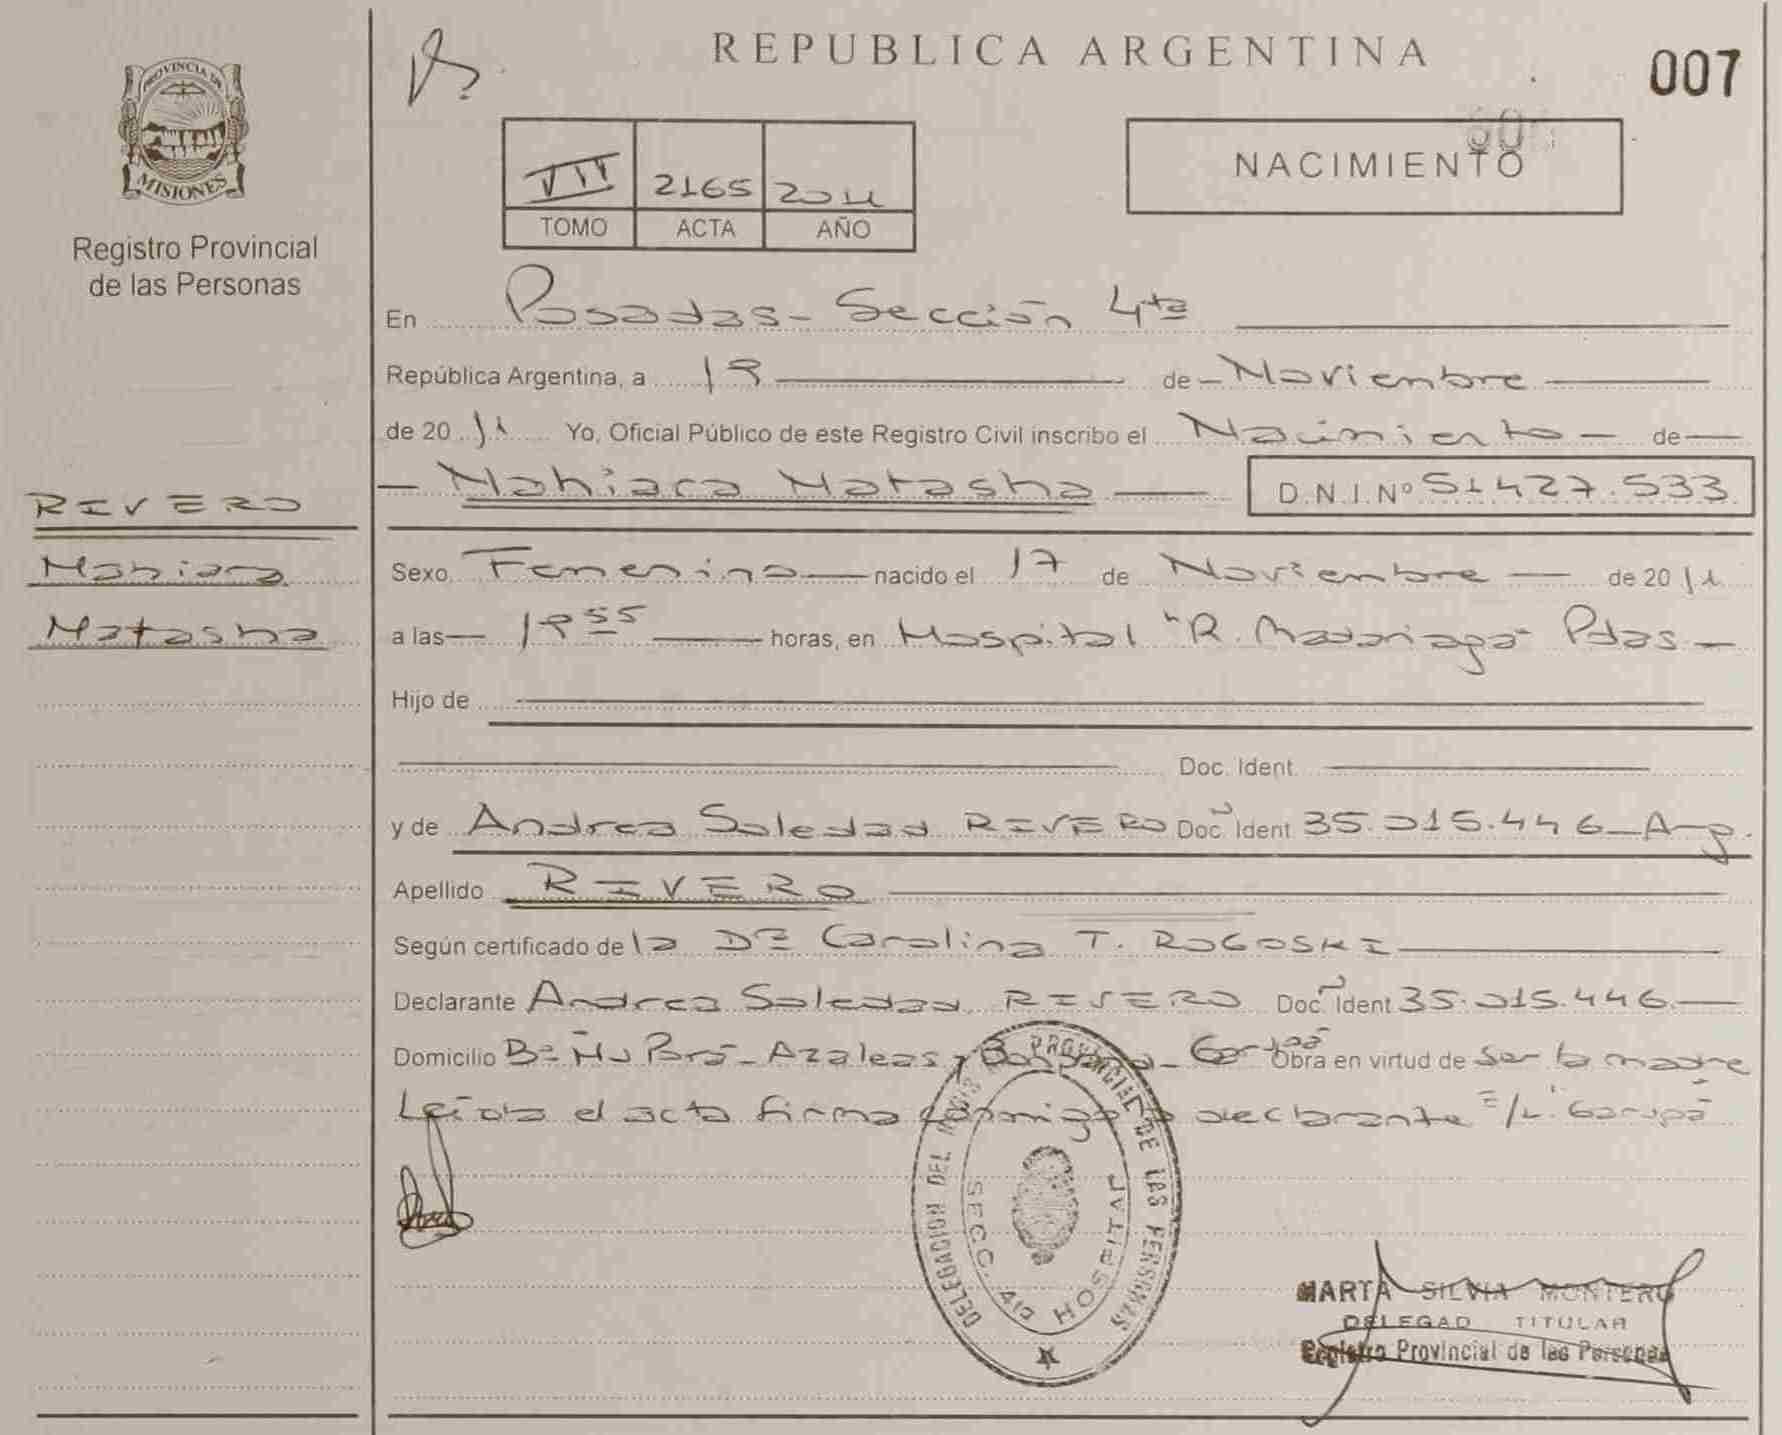 PROVINCIA DE
MISIONES
Registro Provincial
de las Personas
REPUBLICA ARGENTINA
007
VII 2165 2011
TOMO ACTA AÑO
NACIMIENTO
En Posadas - Sección 4ta
República Argentina, a 19 de Noviembre
de 2011 Yo, Oficial Público de este Registro Civil inscribo el Nacimiento de
Nahiara Natasha D.N.I.Nº 51427.533
RIVERO
Nahiara
Natasha
Sexo Femenino nacido el 17 de Noviembre de 2011
a las 19 55 horas, en Hospital "R. Madariaga" Pdas
Hijo de
Doc. Ident.
y de Andrea Soledad RIVERO Doc. Ident 35.015.446 - Arg.
Apellido RIVERO
Según certificado de la Dra Carolina T. ROGOSKI
Declarante Andrea Soledad RIVERO Doc. Ident 35.015.446
Domicilio Bº Ñu Porá - Azaleas y - Garupá Obra en virtud de ser la madre
Leída el acta firma conmigo la declarante E/L: Garupá
DELEGACION DEL REGIS PROVINCIAL DE LAS PERSONAS
SECC. 4ta HOSPITAL
MARTA SILVIA MONTERO
DELEGAD TITULAR
Registro Provincial de las Personas